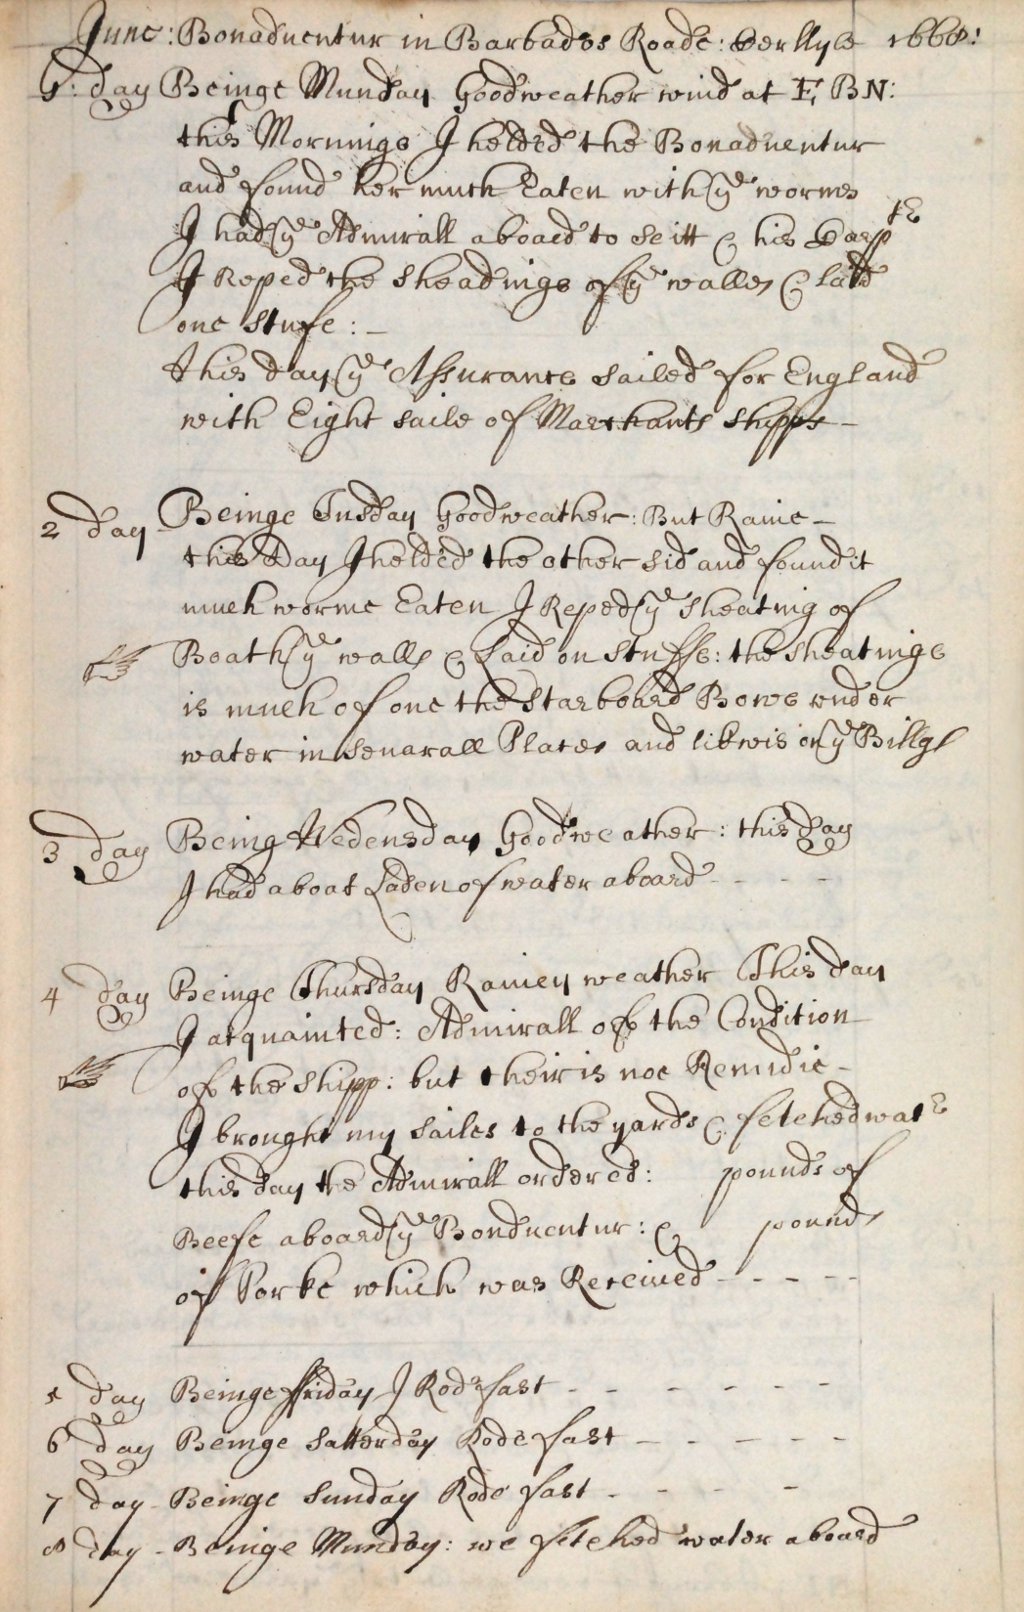 June: Bonaduentur in Barbados Roade: 1666:
1: day Beinge Munday Goodweather wind at E BN:
this Morninge I helded the Bonaduentur
and found her much Eaten with ye wormes
I had ye Admirall aboard to se itt & his Carpte
I Reped the sheadinge of ye walles & laid
one stufe: –
this day ye Assurance sailed for England
with Eight saile of Marchants shipps –
2 day Beinge Tusday Goodweather: But Raine –
this Day I helded the other sid and found it
much worme Eaten I Reped ye sheating of
Boath ye walls & laid on stuffe: the sheatinge
is much of one the starboard Bowe vnder
water in senarall Places and likwis on ye Billgs
3 day Being Wedensday Goodweather: this day
I had a boat Laden of water aboard - - - -
4 day Beinge Thursday Rainey weather This day
I acquainted: Admirall off the Condition
off the shipp: but their is noe Remidie –
I brought my sailes to the yards & fetched wate
this day the Admirall ordered: pounds of
Beefe aboard ye Bonduentur: & pounds
of Porke which was Receiued - - - - -
5 day Beinge ffriday I Rode fast - - - - - -
6 day Beinge satterday Rode fast - - - - - -
7 day - Beinge sunday Rode fast - - - -
8 day - Beinge Munday: we fetched water aboard